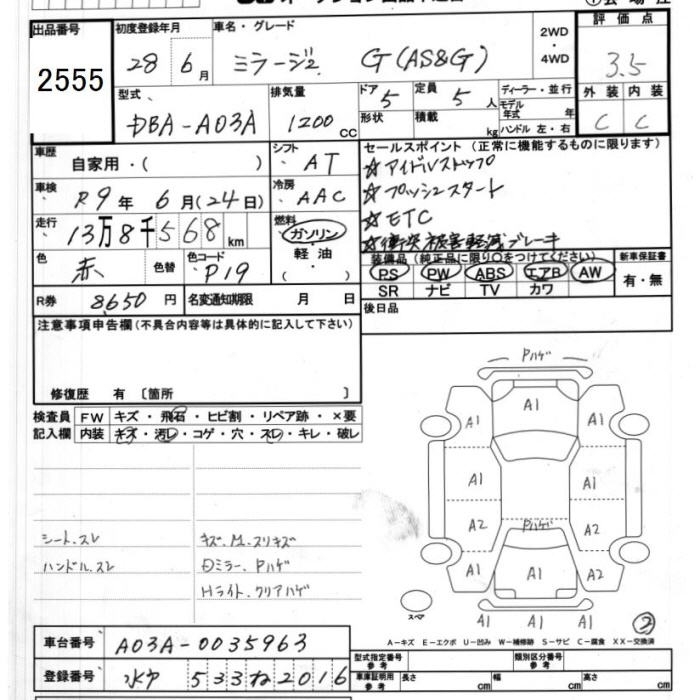 出品番号 2555
初度登録年月 28年 6月
車名・グレード ミラージュ G(AS&G)
2WD・4WD
評価点 3.5
外装 C 内装 C
型式 DBA-A03A
排気量 1200cc
ドア 5 形状
定員 5人 積載 kg
ディーラー・並行
モデル年式 年
ハンドル 左・右
車歴 自家用・( )
シフト AT
セールスポイント(正常に機能するものに限ります)
☆アイドルストップ
☆プッシュスタート
☆ETC
☆衝突被害軽減ブレーキ
車検 R9年 6月(24日)
冷房 AAC
走行 13万8千568km
燃料 ガソリン・軽油・( )
色 赤 色替
色コード P19
装備品(純正品に限り○をつけてください)
PS PW ABS エアB AW
SR ナビ TV カワ
新車保証書 有・無
R券 8,650円
名変通知期限 月 日
後日品
注意事項申告欄(不具合内容等は具体的に記入して下さい)
修復歴 有 〔箇所 〕
検査員記入欄
FW キズ・飛石・ヒビ割・リペア跡・×要
内装 キズ・汚レ・コゲ・穴・スレ・キレ・破レ
シート.スレ
ハンドル.スレ
キズ.M.スリキズ
Dミラー.Pハゲ
Hライト.クリアハゲ
Pハゲ
A1
A1 A1
A1 A1
A2 Pハゲ A2
A1 A1 A2
A1 A1 A1
スペア
②
A-キズ E-エクボ U-凹み W-補修跡 S-サビ C-腐食 XX-交換済
車台番号 A03A-0035963
登録番号 533ね2016
型式指定番号 参考
類別区分番号 参考
車庫証明用 参考 長さ cm 幅 cm 高さ cm